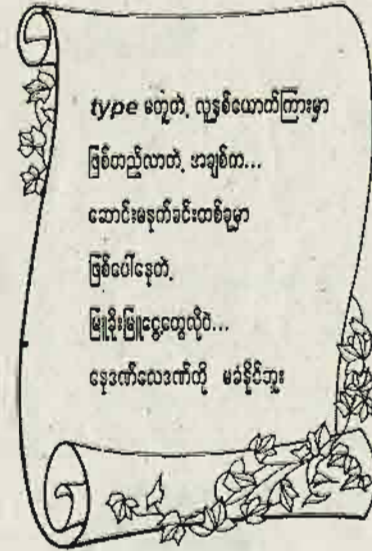 type မတူတဲ့ လူနှစ်ယောက်ကြားမှာ
ဖြစ်တည်လာတဲ့ အချစ်က...
ဆောင်းမနက်ခင်းတစ်ခုမှာ
ဖြစ်ပေါ်နေတဲ့
မြူခိုးမြူငွေ့တွေလိုပဲ...
နေဒဏ်လေဒဏ်ကို မခံနိုင်ဘူး